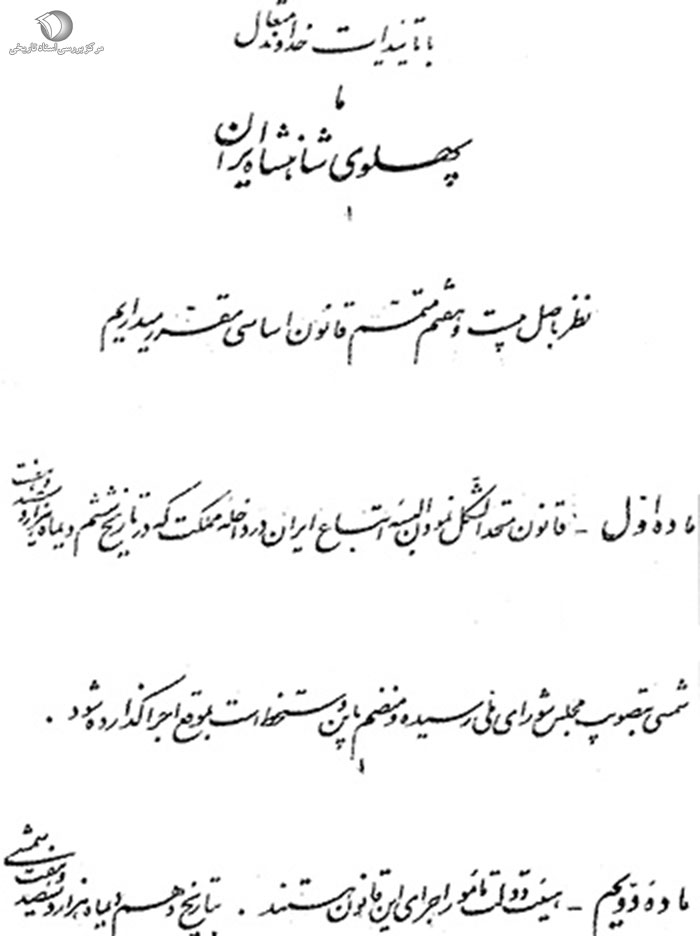 مرکز بررسی اسناد تاریخی
با تأییدات خداوند متعال
ما
پهلوی شاهنشاه ایران
نظر باصل بیست و هفتم متمم قانون اساسی مقرر میداریم
ماده اول - قانون متحدالشکل نمودن البسه اتباع ایران در داخله مملکت که در تاریخ ششم دیماه یکهزار و سیصد و هفت
شمسی بتصویب مجلس شورای ملی رسیده و منضم باین دستخط است بموقع اجرا گذارده شود .
ماده دویم - هیئت دولت مأمور اجرای این قانون هستند . بتاریخ دهم دیماه هزار و سیصد و هفت شمسی